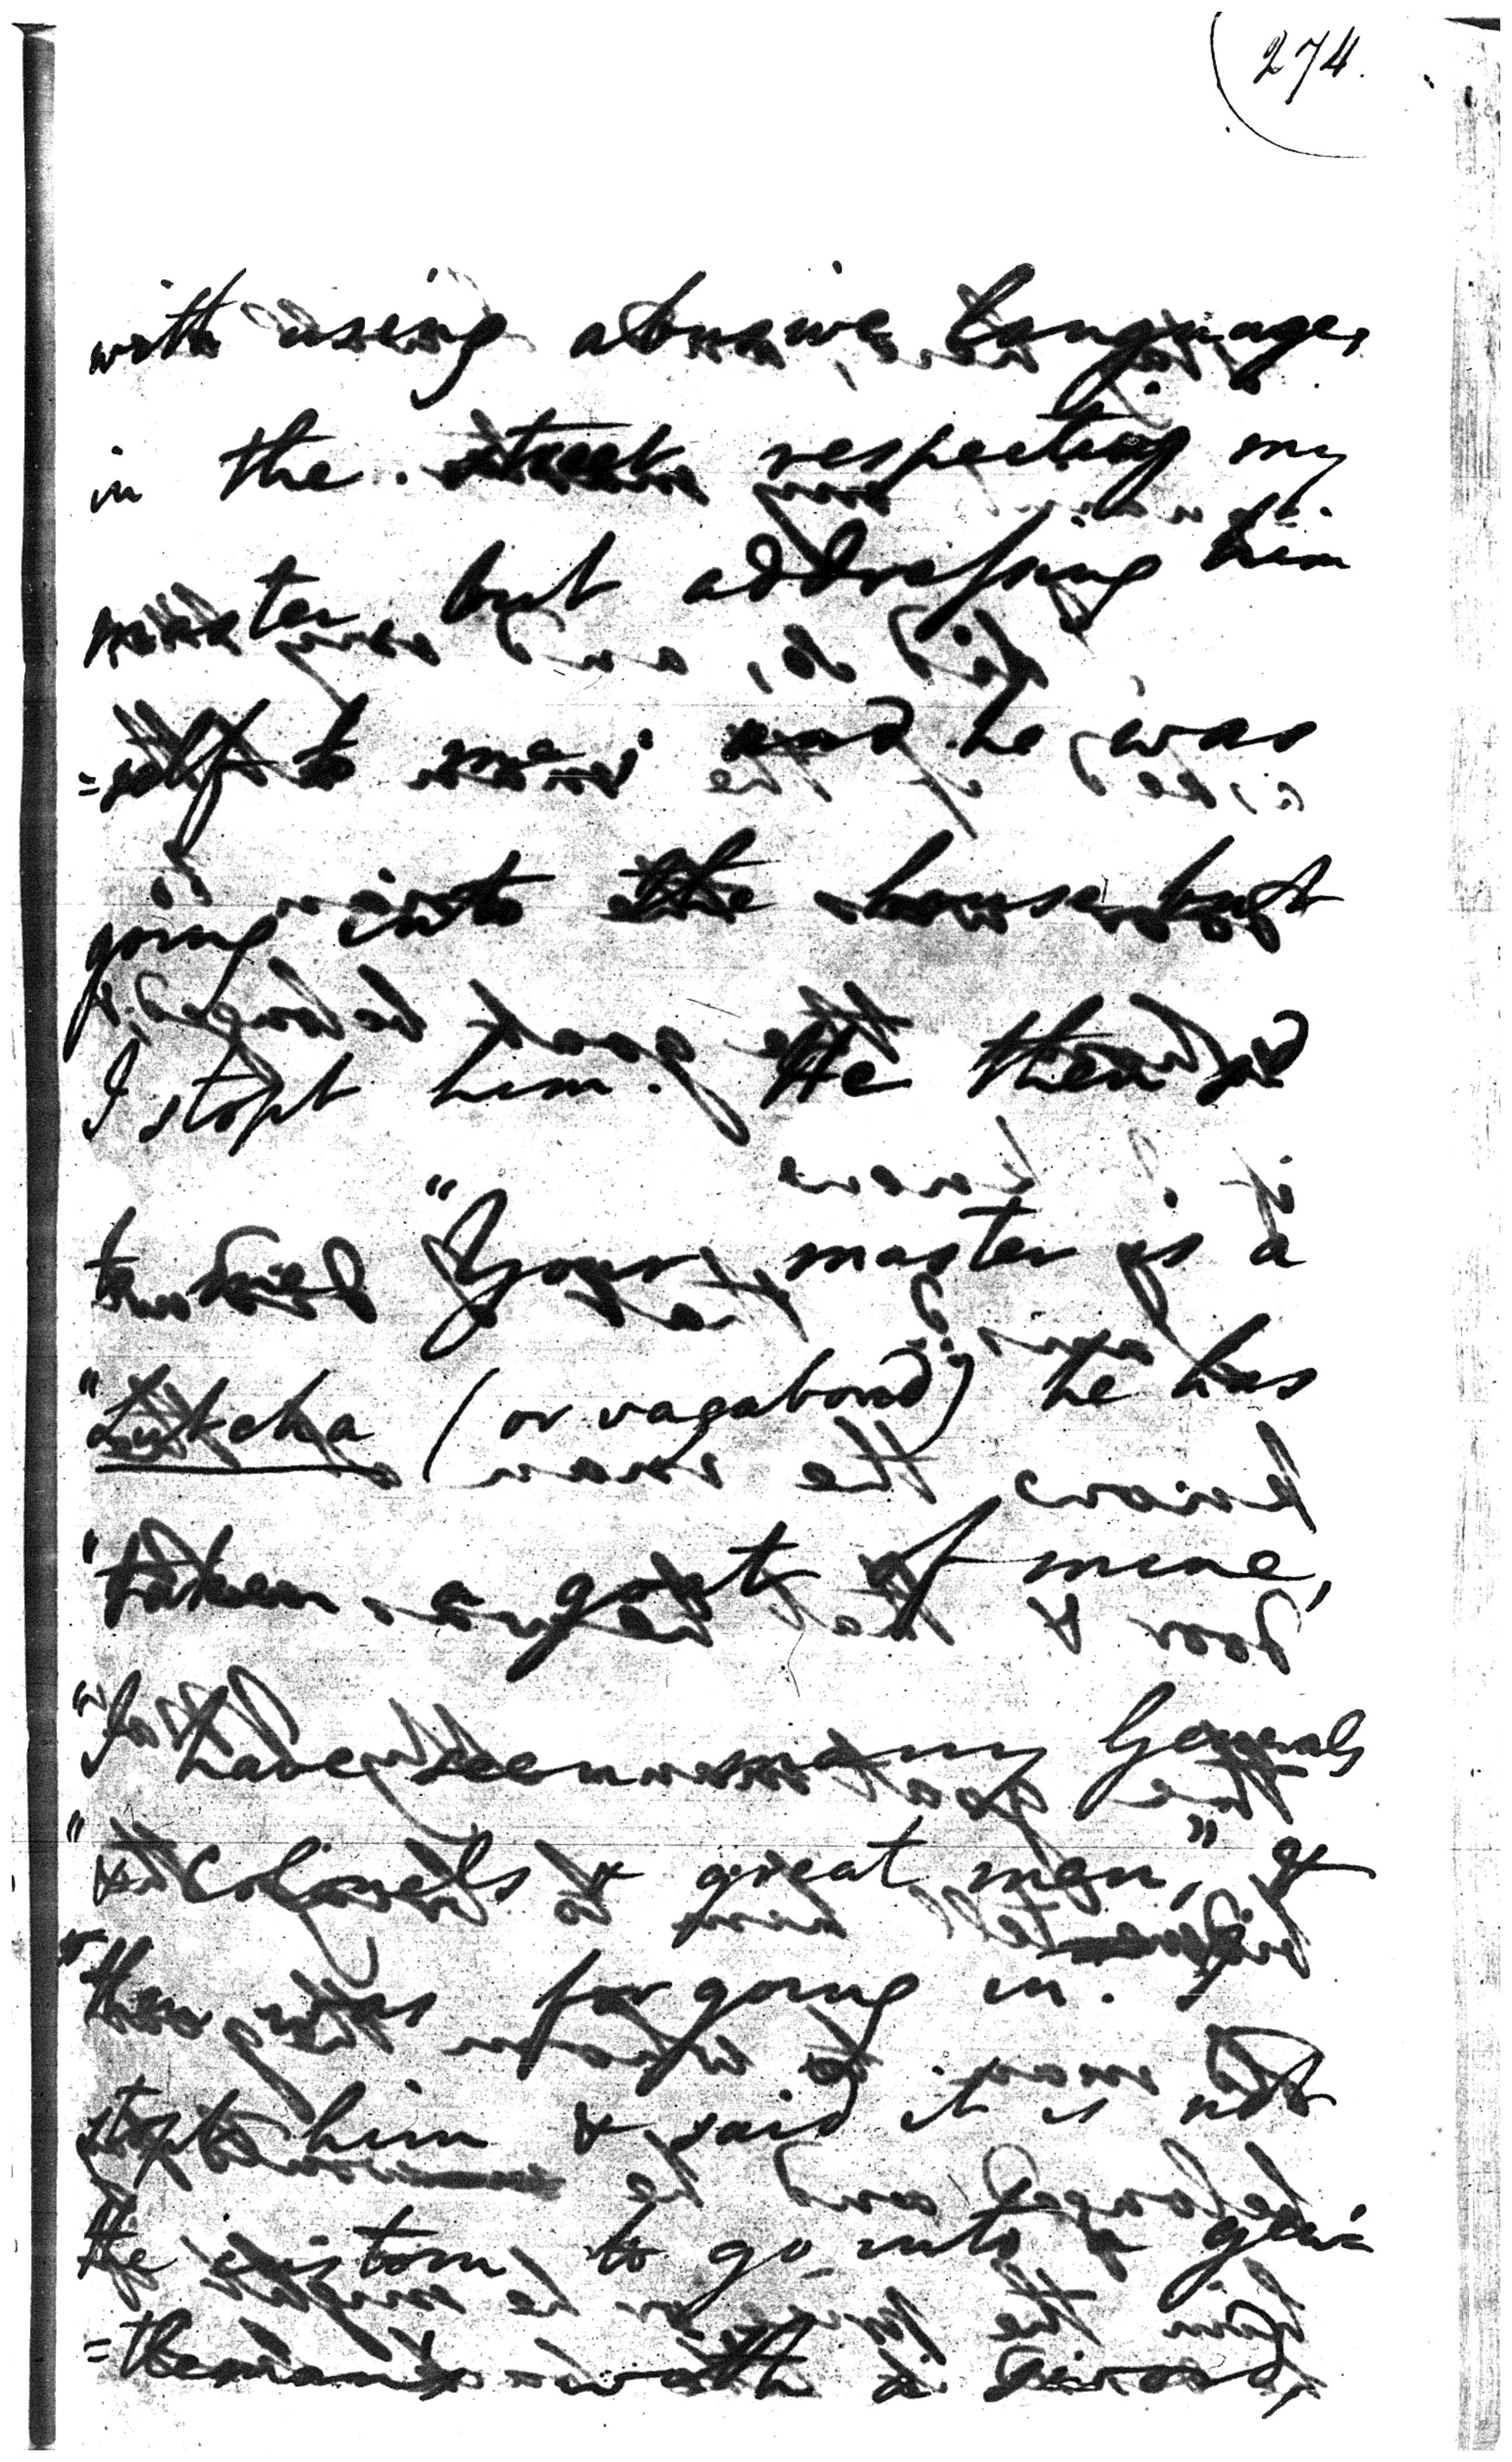 274.
with using abusive language,
in the street respecting my
master but addressing him
=self to me and he was
going into the house but
I stopt him. He then
"Your master is a
"Lutcha (or vagabond) he has
"taken a goat of mine,
"I have seen many Generals
"& Colonels & great men," &
then was for going in. I
stopt him & said it is not
the custom to go into a gen=
=tleman's with a sword,